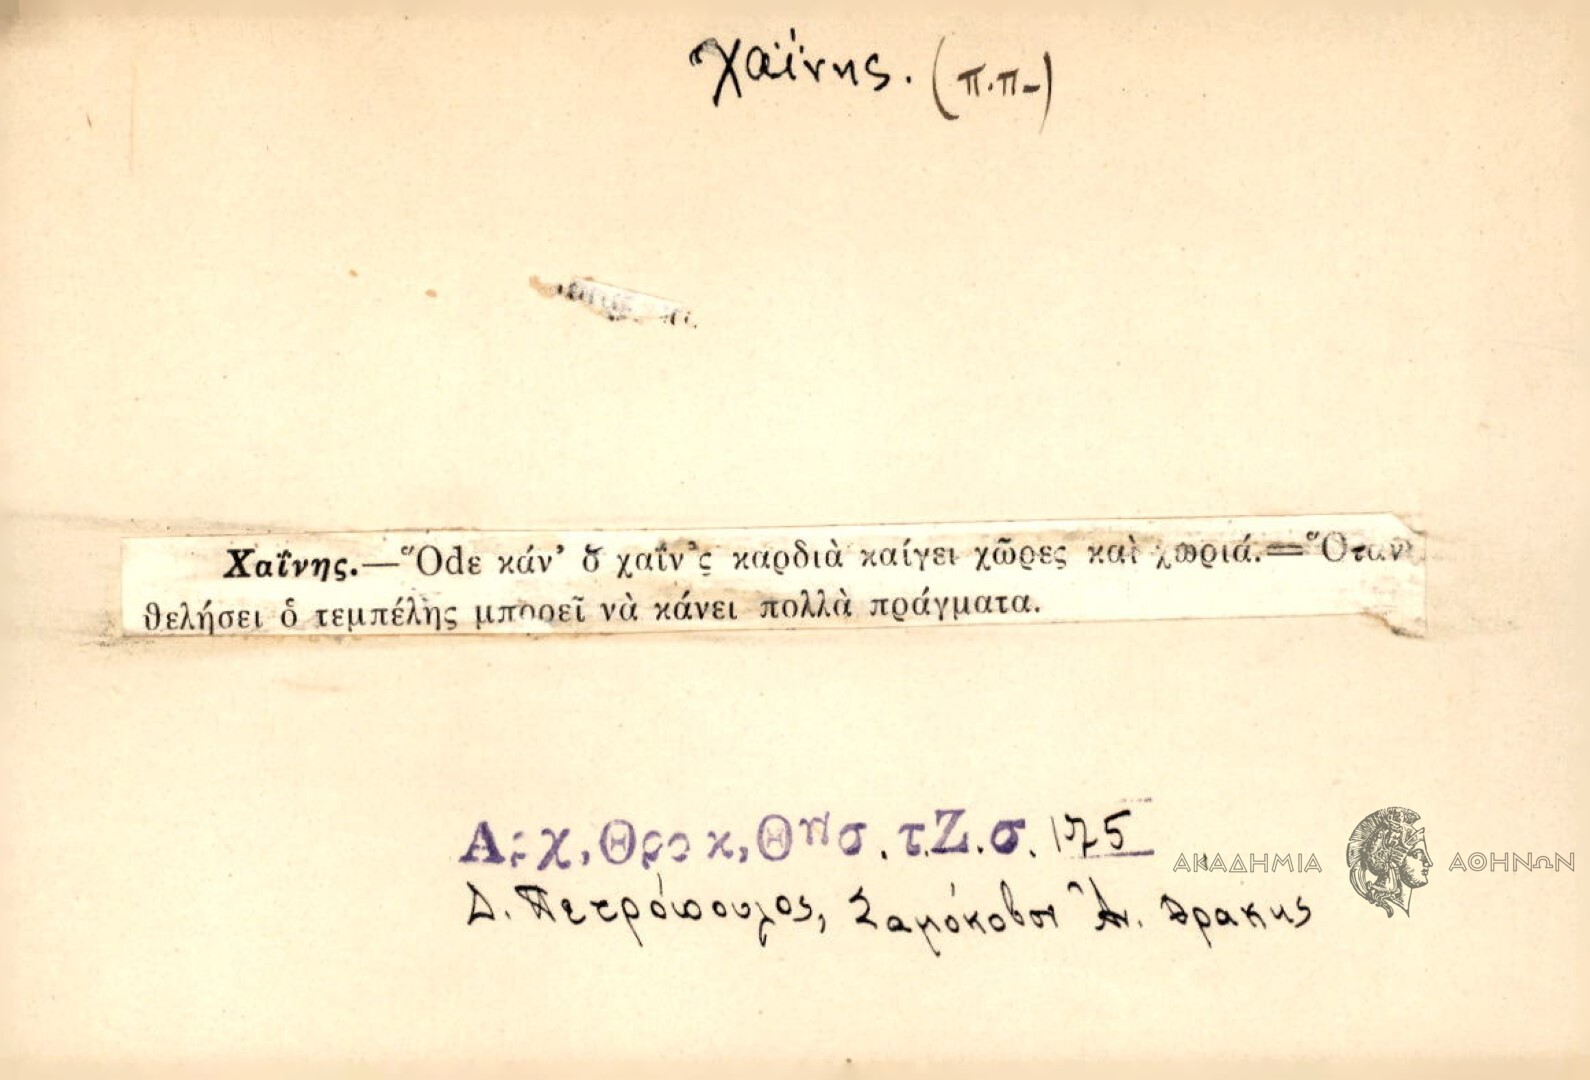 Χαΐνης. (π.π-)
Χαΐνης.—Ὅde κάν' ὁ χαΐν'ς καρδιὰ καίγει χῶρες καὶ χωριά.=Ὅταν
θελήσει ὁ τεμπέλης μπορεῖ νὰ κάνει πολλὰ πράγματα.
Αρχ, Θρακ, Θησ. τ.Ζ.σ. 175
ΑΚΑΔΗΜΙΑ ΑΘΗΝΩΝ
Δ. Πετρόπουλος, Σαμόκοβον Ἀν. Θρακης